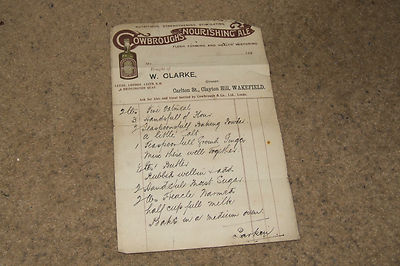 NUTRITIOUS, STRENGTHENING, STIMULATING,
COWBROUGHS NOURISHING ALE
FLESH FORMING AND HEALTH RESTORING
M
Bought of
W. CLARKE,
Grocer
Carlton St., Clayton Hill, WAKEFIELD.
Ask for Ales and Stout bottled by Cowbrough & Co., Ltd., Leeds.
2 lbs Fine Oatmeal
3 Handsfull of Flour
2 Teaspoonsfull Baking Powder
a little Salt
1 Teaspoonfull Ground Ginger
Mixe these well together
Butter
Rubbed well in Lard
2 Handfuls Moist Sugar
2 lbs Treacle Warmed
half cup full milk
Bake in a medium oven
Parkin